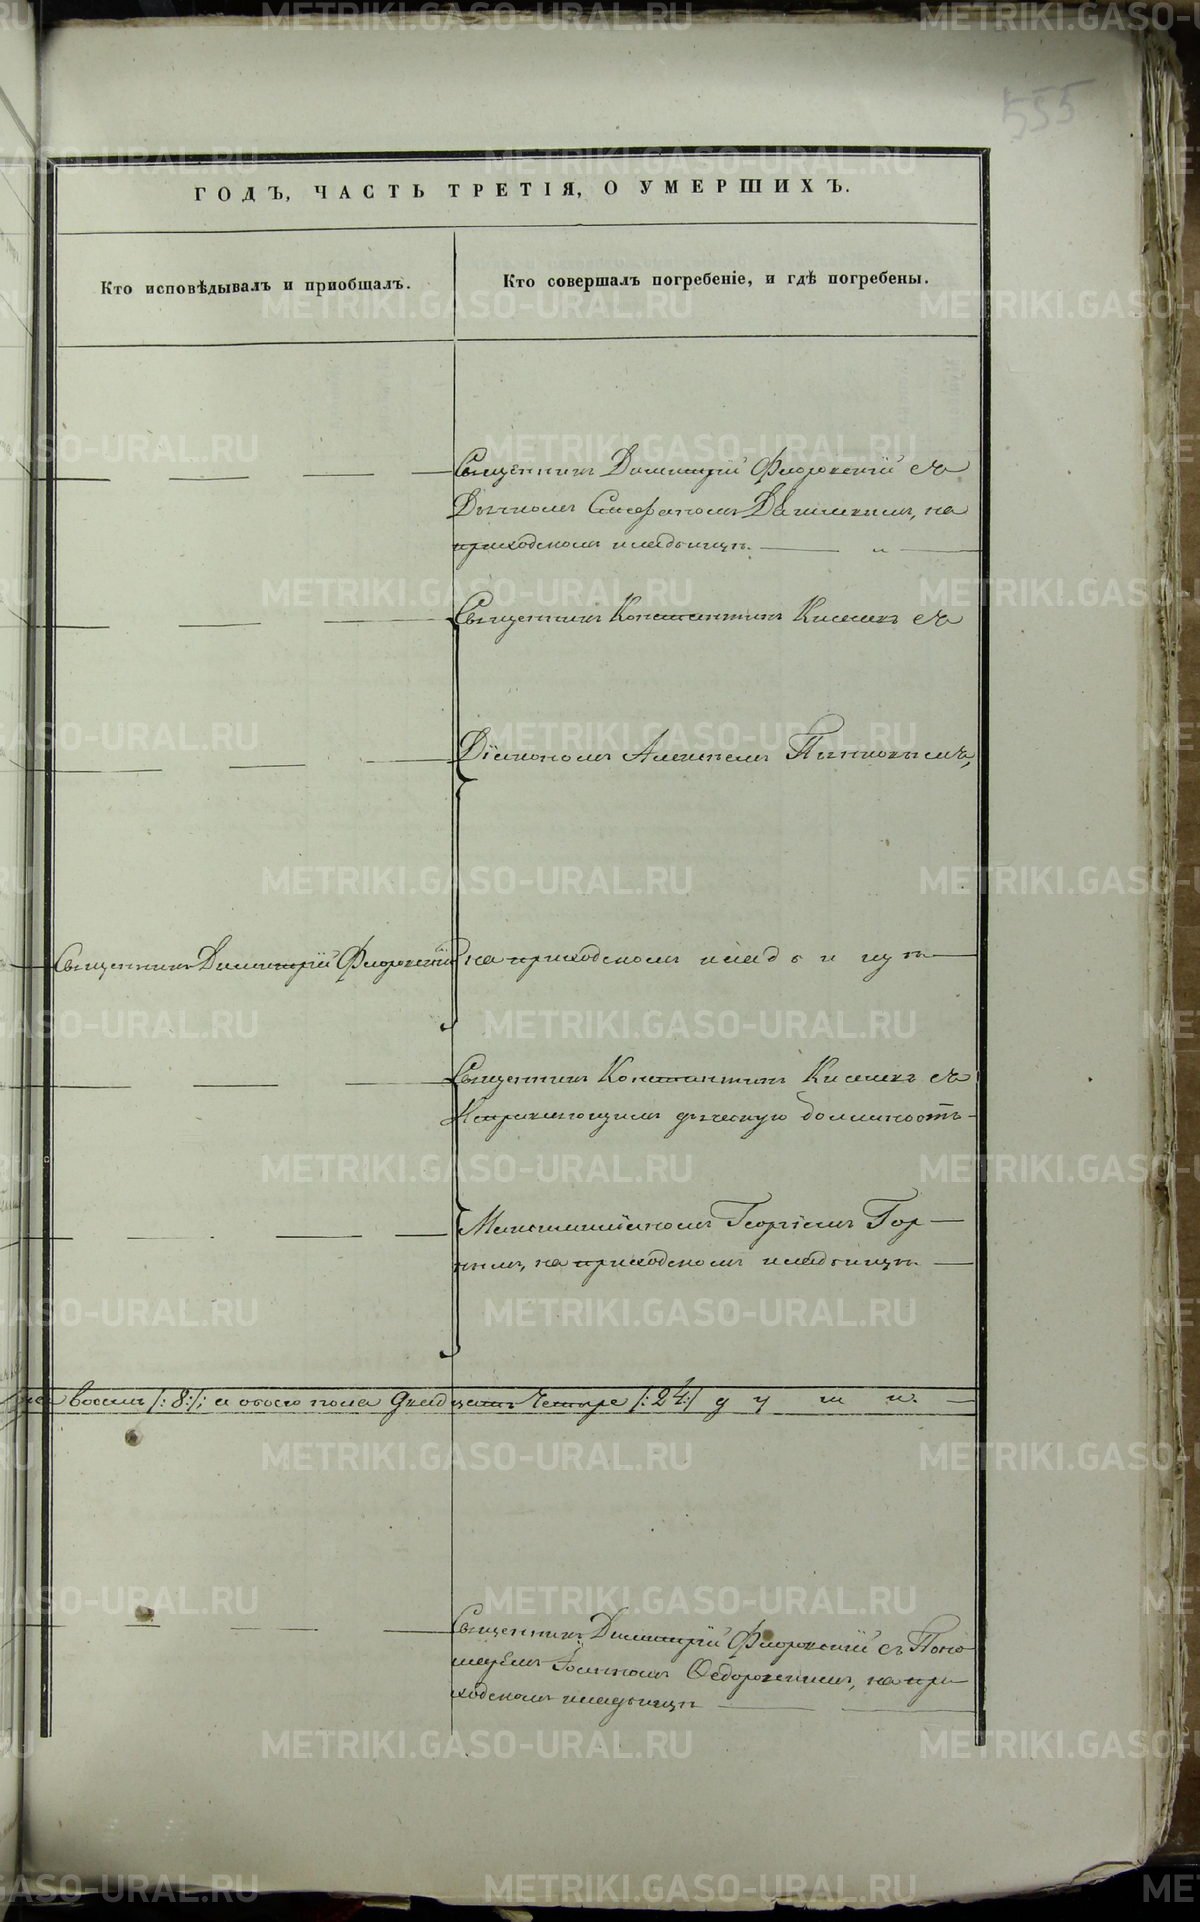 555
ГОДЪ, ЧАСТЬ ТРЕТІЯ, О УМЕРШИХЪ.
Кто исповѣдывалъ и пріобщалъ.
Кто совершалъ погребеніе, и гдѣ погребены.
Священникъ Димитрій Флоровскій съ
Дьячкомъ Стефаномъ, на
приходскомъ кладбищѣ. — „ —
Священникъ Константинъ Киселевъ съ
Діакономъ Алексѣемъ,
Священникъ Димитрій Флоровскій
на приходскомъ кладбищѣ
Священникъ Константинъ Киселевъ съ
Исправляющимъ дьяческую должность
Георгіемъ Гор—
нымъ, на приходскомъ кладбищѣ —
восемь /:8:/; а обоего пола двадцать четыре /:24:/ душъ. —
Священникъ Димитрій Флоровскій съ Поно
маремъ Іоанномъ Ѳедоровскимъ, на при—
ходскомъ кладбищѣ
METRIKI.GASO-URAL.RU